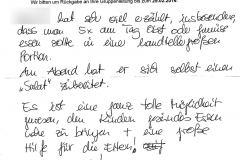 Wir bitten um Rückgabe an Ihre Gruppenleitung bis zum 26.02.2016.
hat sehr viel erzählt, insbesondere,
dass man 5x am Tag Obst oder Gemüse
essen sollte in einer handtellergroßen
Portion.
Am Abend hat er sich selbst einen
„Salat" zubereitet.
Es ist eine ganz tolle Möglichkeit
gewesen, den Kindern gesundes Essen
näher zu bringen + eine große
Hilfe für die Eltern!